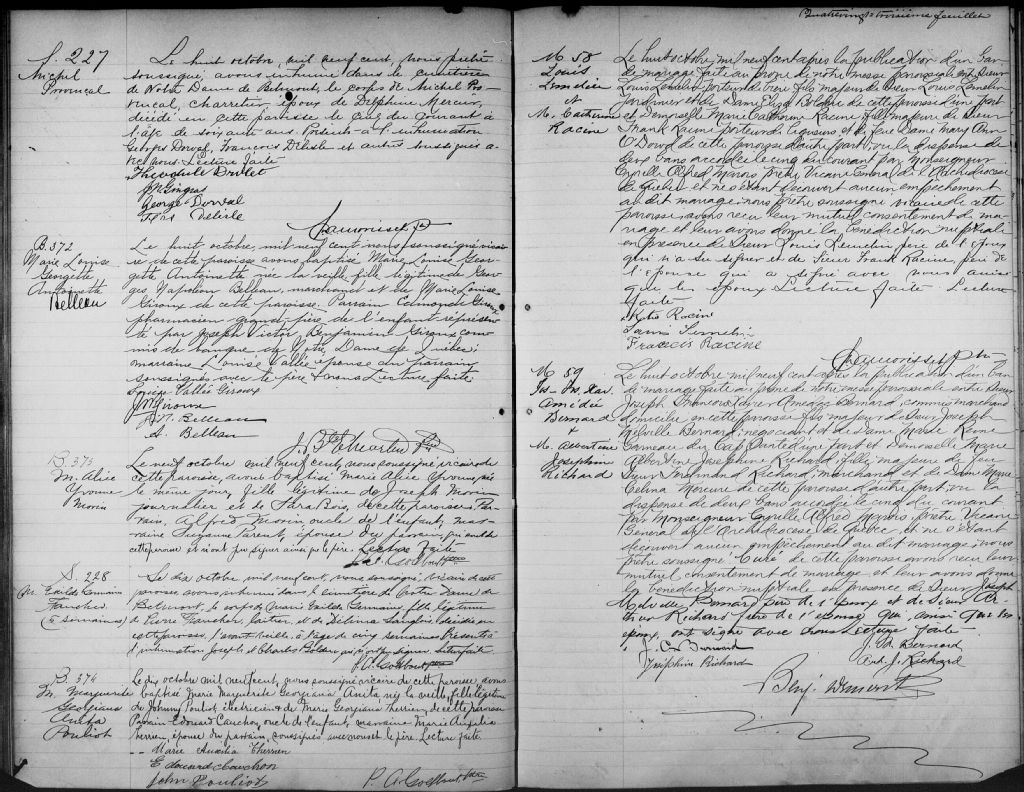 S. 227
Michel
Provençal
Le huit octobre, mil neuf cent, nous prêtre
soussigné, avons inhumé dans le cimetière
de Notre Dame de Belmont, le corps de Michel Pro-
vençal, charretier, époux de Delphine Mercier,
décédé en cette paroisse le cinq du courant à
l'âge de soixante ans Présents à l'inhumation
Georges Dorval, François Delisle et autres soussignés a-
vec nous. Lecture faite
Théophile Drolet
J Gingras
George Dorval
Frs Delisle
B. 372
Marie Louise
Georgette
Antoinette
Belleau
Le huit octobre, mil neuf cent nous soussigné vicai-
re de cette paroisse avons baptisé Marie Louise Geor-
gette Antoinette née la veille, fille légitime de Geor-
ges Napoléon Belleau, marchand et de Marie Louise
Giroux de cette paroisse. Parrain Edmond Giroux
pharmacien grand-père de l'enfant représen-
té par Joseph Victor Benjamin Giroux com-
mis de banque de Notre Dame de Québec;
marraine Louise Vallée épouse du parrain
soussignés avec le père & nous Lecture faite
Louise Vallée Giroux
Giroux
Belleau
A. Belleau
B. 373
M. Alice
Yvonne
Morin
Le neuf octobre mil neuf cent, nous soussigné vicaire de
cette paroisse, avons baptisé Marie Alice Yvonne, née
le même jour, fille légitime de Joseph Morin
journalier et de Sara Bois, de cette paroisse. Par-
rain, Alfred Morin, oncle de l'enfant, mar-
raine Suzanne Parent, épouse du parrain qui ainsi de
cette paroisse et n'ont pu signer ainsi que le père. Lecture faite
S. 228
M. Exilda Germain
Franchon
(5 semaines)
Le dix octobre mil neuf cent, nous soussigné, vicaire de cette
paroisse, avons inhumé dans le cimetière de Notre Dame de
Belmont, le corps de Marie Exilda Germain, fille légitime
de Pierre Franchon, et de Délima Langlois, décédée en
cette paroisse, l'avant veille, à l'âge de cinq semaines Présents à
l'inhumation Joseph et Charles Bolduc, qui ont pu signer Lecture faite.
B. 374
M. Marguerite
Georgiana
Anita
Pouliot
Le dix octobre mil neuf cent, nous soussigné vicaire de cette paroisse, avons
baptisé Marie Marguerite Georgiana Anita née la veille, fille légitime
de Johnny Pouliot, électricien & de Marie Georgiana Therrien, de cette paroisse
Parrain Edouard Cauchon, oncle de l'enfant, marraine Marie Auxilia
Therrien, épouse du parrain, soussignés avec nous et le père. Lecture faite.
Marie Auxilia Therrien
Edouard Cauchon
John Pouliot
Quatrevingt troisième feuillet
M 58
Louis
Lemelin
et
M. Catherine
Racine
Le huit octobre, mil neuf cent après la publication d'un ban
de mariage faite au prône de notre messe paroissiale entre Sieur
Louis Lemelin, fils majeur de Sieur Louis Lemelin
jardinier et de Dame Eliza Bolduc de cette paroisse d'une part
et Demoiselle Marie Catherine Racine fille majeure de Sieur
Frank Racine porteur de liqueurs et de feue Dame Mary Ann
O'Dowd de cette paroisse d'autre part; vu la dispense de
deux bans accordée le cinq du courant par Monseigneur
Cyrille Alfred Marois, prêtre, Vicaire Général de l'Archidiocèse
de Québec et ne s'étant découvert aucun empêchement
au dit mariage; nous prêtre soussigné vicaire de cette
paroisse avons reçu leur mutuel consentement de ma-
riage et leur avons donné la bénédiction nuptiale
en présence de Sieur Louis Lemelin père de l'époux
qui n'a su signer et de Sieur Frank Racine père de
l'épouse qui a signé avec nous ainsi
que les époux Lecture faite. Lecture
faite
Kate Racin
Louis Lemelin
Francis Racine
M 59
Jos. Frs. Xav.
Amédée
Bernard
&
M. Albertine
Josephine
Richard
Le huit octobre mil neuf cent après la publication d'un ban
de mariage faite au prône de notre messe paroissiale entre Sieur
Joseph François Xavier Amédée Bernard, commis marchand
domicilié en cette paroisse fils majeur de Sieur Joseph
Melville Bernard, négociant et de Dame Marie Reine
Garneau du Cap Santé d'une part et Demoiselle Marie
Albertine Josephine Richard, fille majeure de feu
Sieur Ferdinand Richard, marchand et de Dame Marie
Célina Mercure de cette paroisse d'autre part; vu la
dispense de deux bans accordée le cinq du courant
par Monseigneur Cyrille Alfred Marois prêtre Vicaire
Général de l'Archidiocèse de Québec et ne s'étant
découvert aucun empêchement au dit mariage; nous
prêtre soussigné Curé de cette paroisse avons reçu leur
mutuel consentement de mariage et leur avons donné
la bénédiction nuptiale en présence de Sieur Joseph
Melville Bernard père de l'époux et de Sieur Ar-
thur Richard frère de l'épouse qui, ainsi que les
époux, ont signé avec nous Lecture faite.
J. Bernard
J. M. Bernard
Joséphine Richard
Art. J. Richard
Benj. Demers